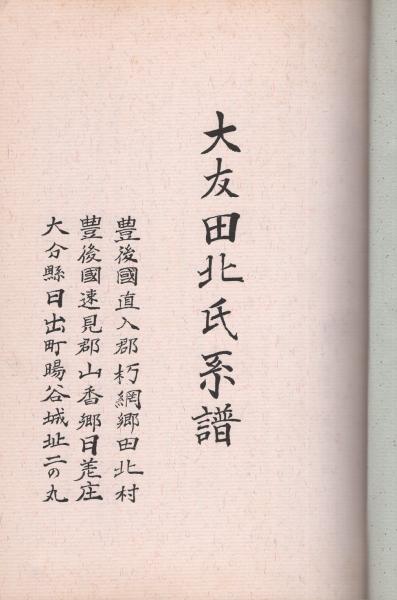 大友田北氏系譜
豊後國直入郡朽網鄉田北村
豊後國速見郡山香鄉日差庄
大分縣日出町暘谷城址二の丸